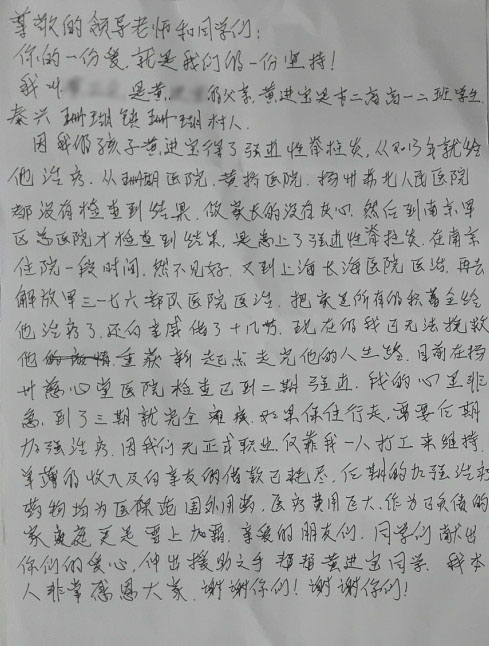 尊敬的领导老师和同学们：
你的一份爱，就是我们的一份坚持！
我叫 是黄 的父亲，黄进宝是市二高高一二班学生，
泰兴珊瑚镇珊瑚村人。
因我的孩子黄进宝得了强直性脊柱炎，从2013年就给
他治疗。从珊瑚医院，黄桥医院，扬州苏北人民医院
都没有检查到结果，做家长的没有灰心，然后到南京军
区总医院才检查到结果，是患上了强直性脊柱炎，在南京
住院一段时间，然不见好，又到上海长海医院医治，再去
解放军三一七六部队医院医治，把家里所有的积蓄全给
他治病了，还向亲戚借了十几万，现在的我已无法挽救
他 重获新起点走完他的人生路，目前在扬
州 心堂医院检查已到二期强直，我的心里非
急，到了三期就完全瘫痪，如果保住行走，需要长期
加强治疗，因我们无正式职业，仅靠我一人打工来维持，
单薄的收入及向亲友的借款已耗尽，长期的加强治疗
药物均为医保范围外用药，医疗费用巨大，作为已负债的
家庭更是雪上加霜，亲爱的朋友们，同学们献出
你们的爱心，伸出援助之手帮帮黄进宝同学，我本
人非常感恩大家，谢谢你们！谢谢你们！